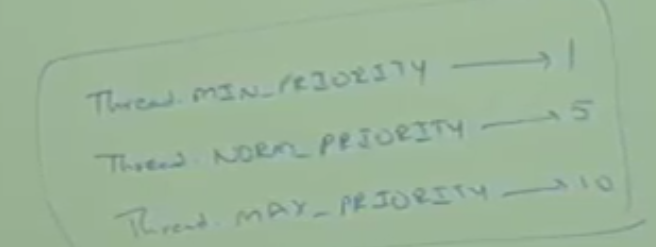 Thread.MIN_PRIORITY → 1
Thread.NORM_PRIORITY → 5
Thread.MAX_PRIORITY → 10